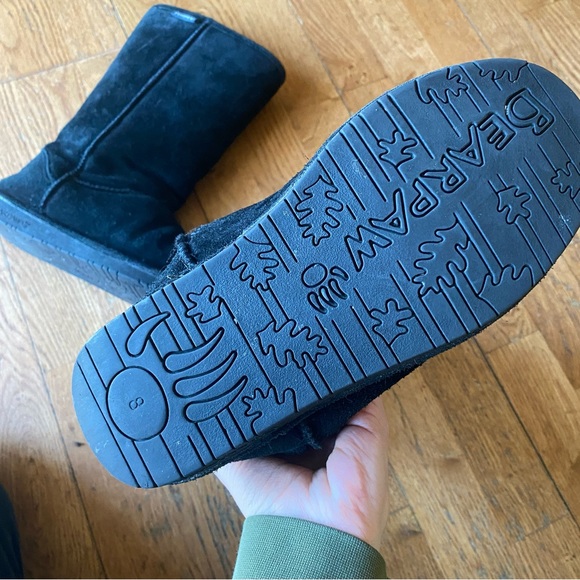 BEARPAW
8